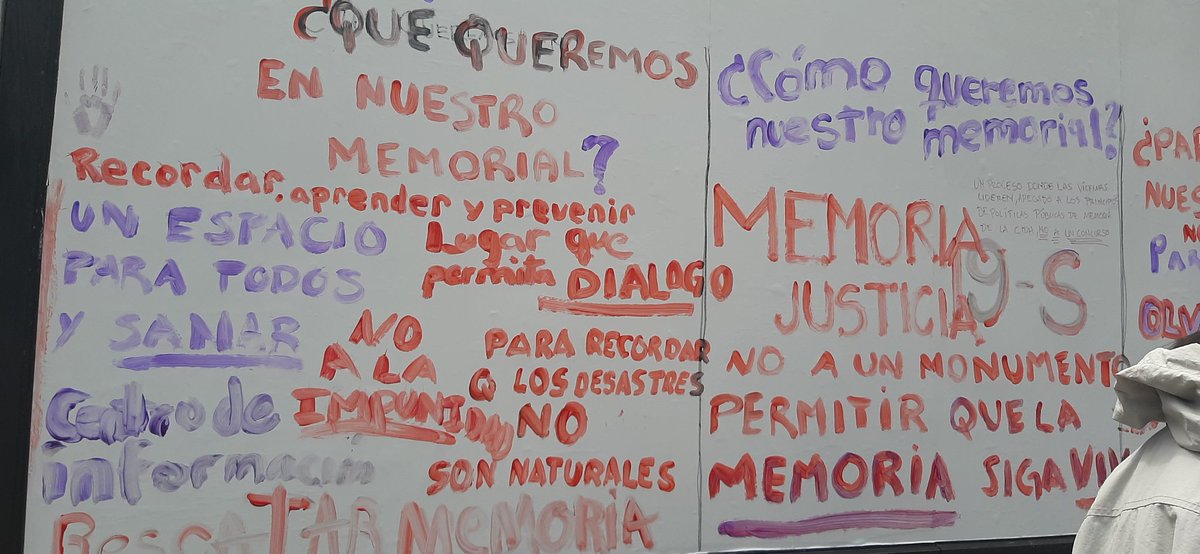 ¿QUÉ QUEREMOS
EN NUESTRO
MEMORIAL?
Recordar, aprender y prevenir
UN ESPACIO
PARA TODOS
Y SANAR
Lugar que
permita DIALOGO
NO
A LA
IMPUNIDAD
PARA RECORDAR
Q LOS DESASTRES
NO
SON NATURALES
Centro de
información
RescATAR MEMORIA
¿Cómo queremos
nuestro memorial?
UN PROCESO DONDE LAS VÍCTIMAS
LIDEREN, APEGADO A LOS PRINCIPIOS
DE POLÍTICAS PÚBLICAS DE MEMORIA
DE LA CIDH NO A UN CONCURSO
MEMORIA
JUSTICIA
19-S
NO A UN MONUMENTO
PERMITIR QUE LA
MEMORIA SIGA VIV
¿PAR
NUES
NO
PAR
OLV